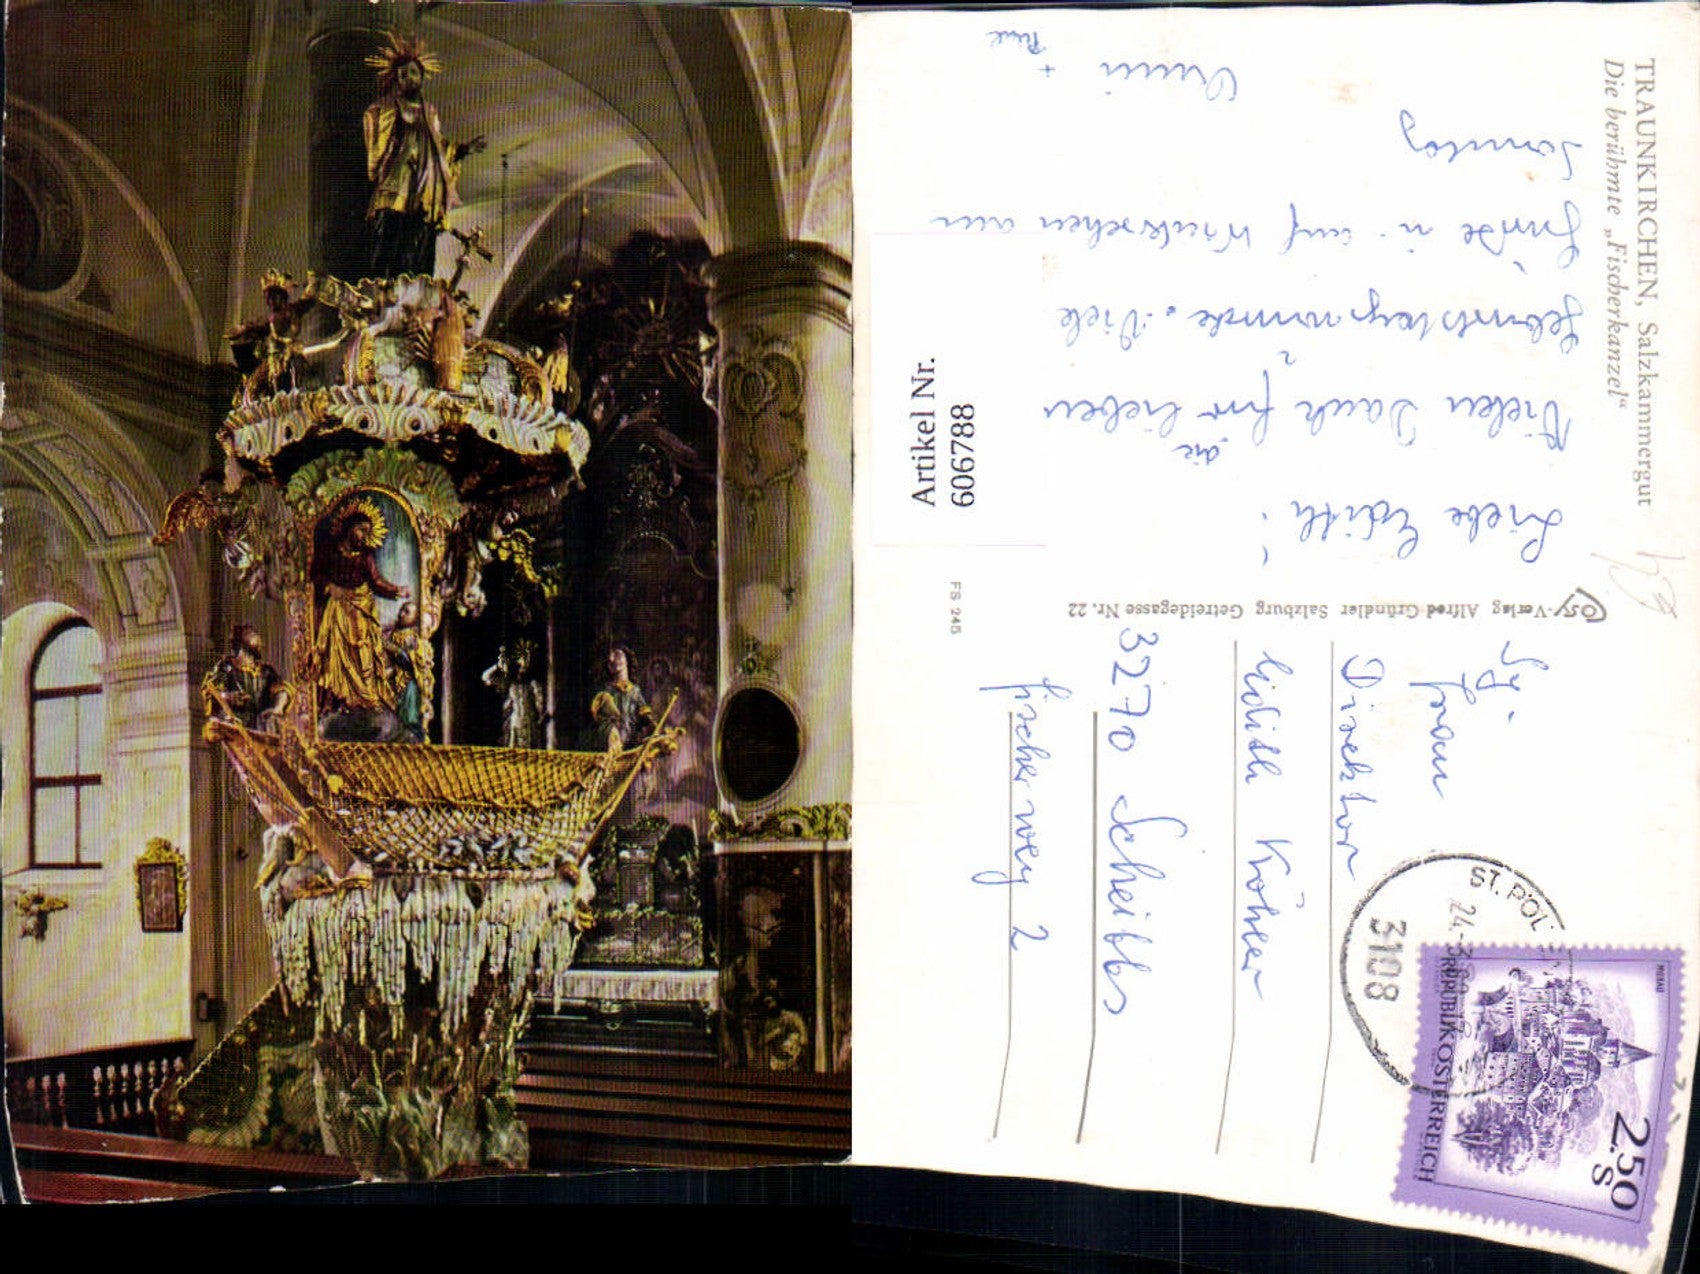 TRAUNKIRCHEN, Salzkammergut
Die berühmte „Fischerkanzel“
Liebe Edith!
Vielen Dank für die lieben
Geburtstagswünsche. Viele
Grüße u. auf Wiedersehen am
Sonntag
+
Cosy-Verlag Alfred Gründler Salzburg Getreidegasse Nr. 22
FS 245
Frau
Direktor
Edith Köhler
3270 Scheibbs
Fischerweg 2
ST. PÖL
3108
MURAU
REPUBLIK ÖSTERREICH
2.50
S
Artikel Nr.
6067788